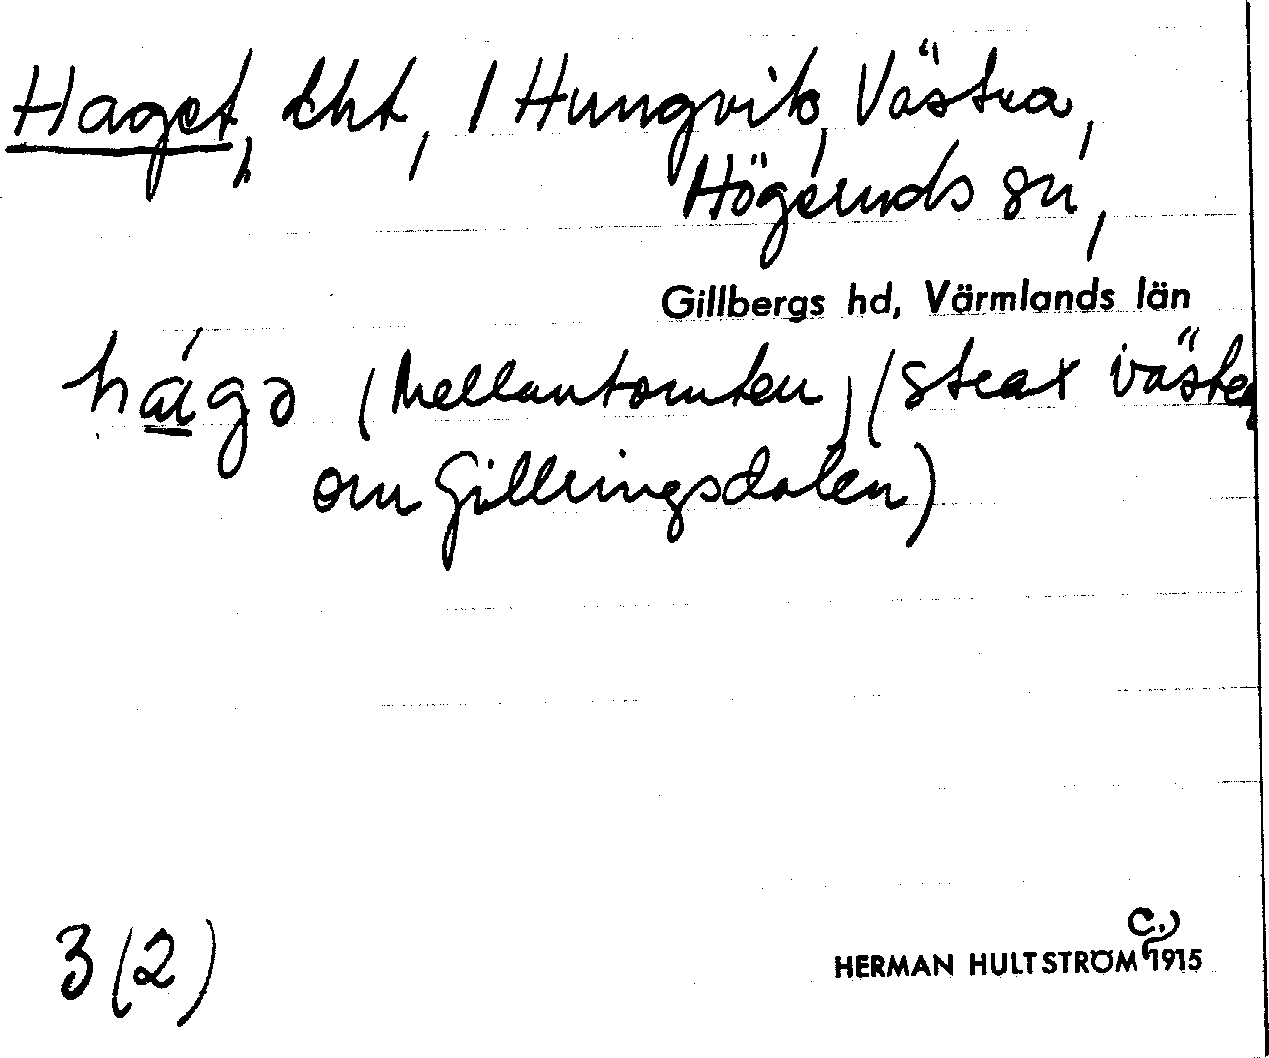 Haget, tht, / Hungvik, Västra,
Högeruds sn,
Gillbergs hd, Värmlands län
há̱gə (Mellantomten) (strax väster
om Gillerngsdalen)
3 (2)
HERMAN HULTSTRÖM C:) 1915